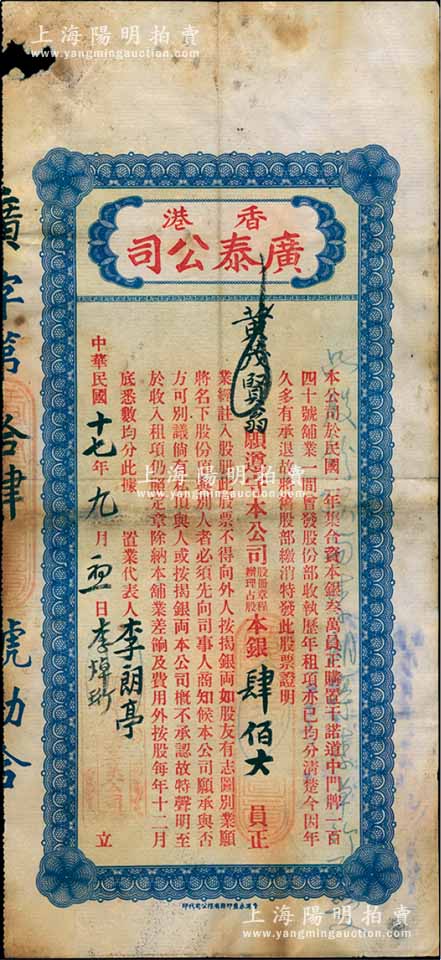 上海陽明拍賣
www.yangmingauction.com
香港
廣泰公司
本公司於民國一年集合資本銀叁萬員正購置干諾道中門牌一百
四十號舖業一間曾發股份部收執歷年租項亦已均分清楚今因年
久多有承退故將舊股部繳消特發此股票證明
黃茂賢翁願遵守本公司股冊章程辦理占股本銀肆佰大員正
業經註入股冊此股票不得向外人按揭銀両如股友有志圖別業願
將名下股份讓與別人者必須先向司事人商知候本公司願承與否
方可別議倘私相授與人或按揭銀両本公司概不承認故特聲明至
於收入租項仍照定章除納本舖業差餉及費用外按股每年十二月
底悉數均分此據
置業代表人李朗亭
李焯珩
中華民國十七年九月 日 立
廣字第拾肆號
上海陽明拍賣
www.yangmingauction.com